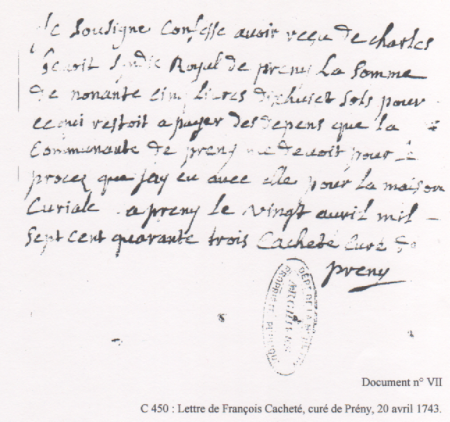 Je sousigne confesse avoir reçu de charles
Sindic Royal de preny la somme
de nonante cinq livres dixhuict sols pour
ce qui restoit a payer des depens que la
Communaute de preny me devoit pour le
procez que jay eu avec elle pour la maison
Curiale a preny le vingt avril mil
sept cent quarante trois Cacheté Curé de
preny
Document n° VII
C 450 : Lettre de François Cacheté, curé de Prény, 20 avril 1743.